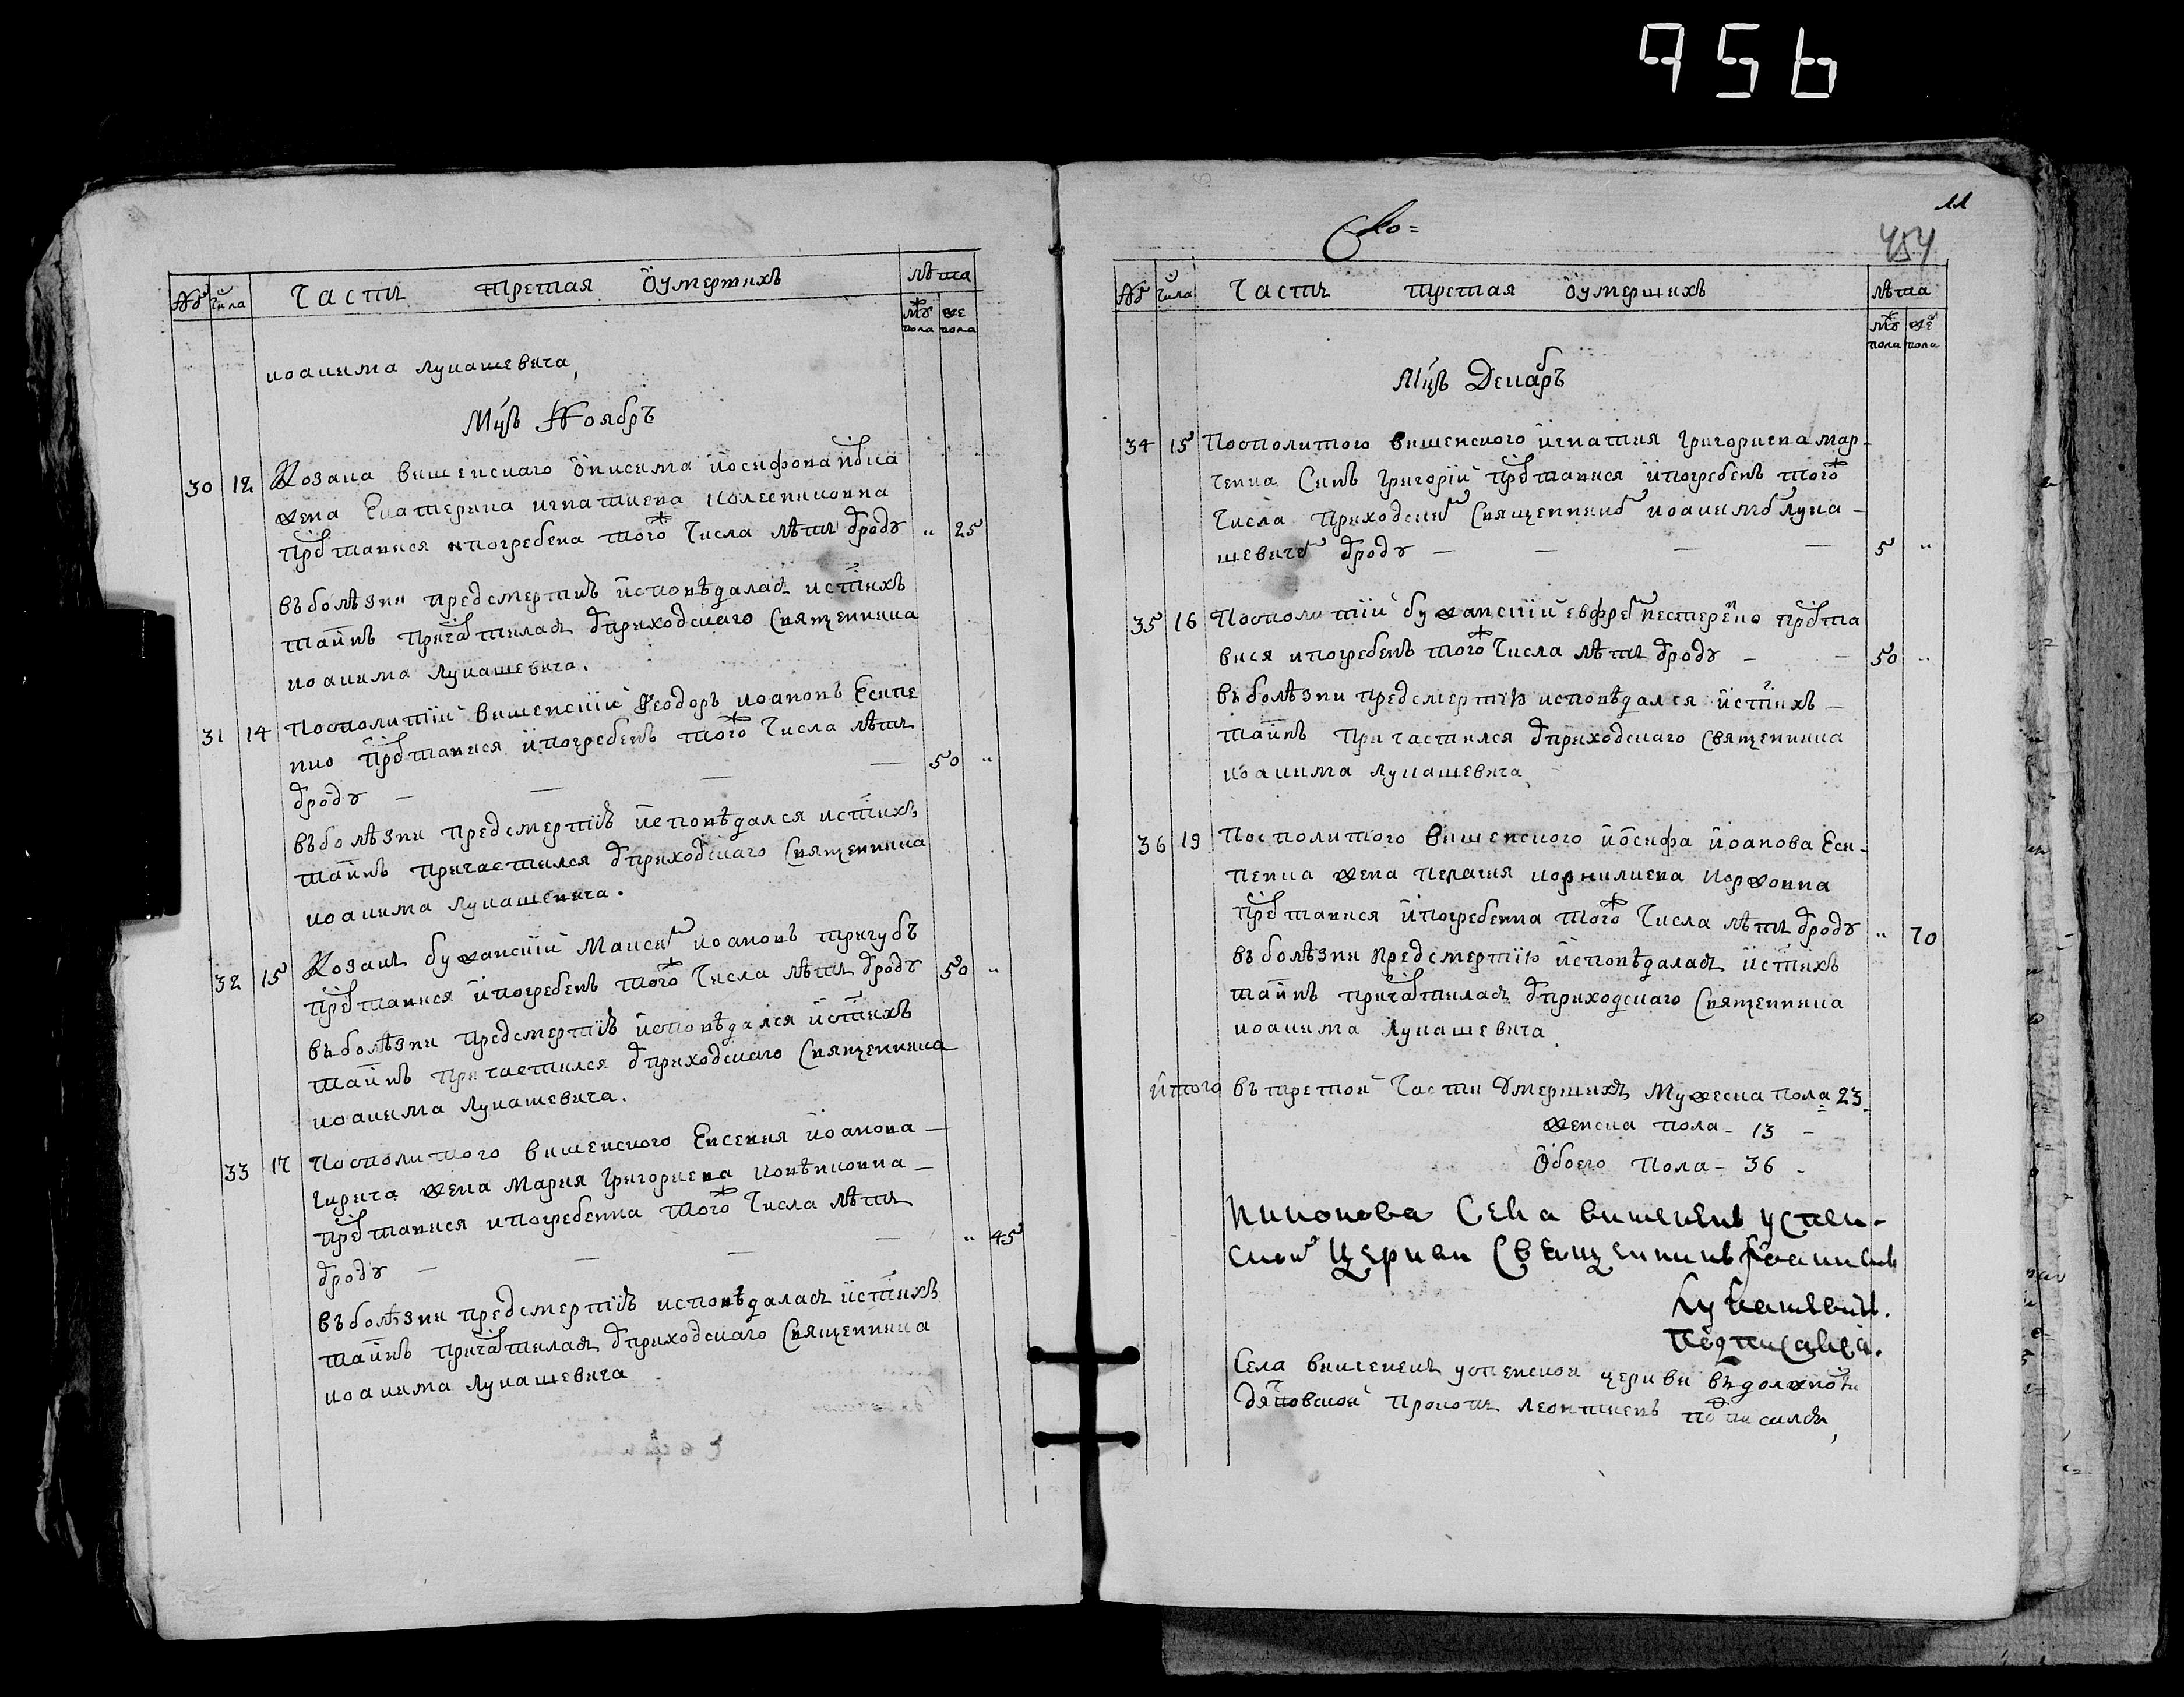 956
№ Чи́ла Часть третая Оумершихъ лѣта
му́ пола же пола
иоакима лукашевича,
Мцъ Ноябръ
30 12 Козака вишенскаго Онисима иосифова
жена Екатерина игнатиева Колесниковна
преставися ипогребена того числа лѣтъ ѿроду „ 25
въболѣзни предсмертнѣ исповѣдалась истихъ
таинъ причастилась ѿприходскаго Священника
иоакима лукашевича.
31 14 Посполитїй вишенскїй Феодоръ иоановъ Есипе
нко преставися ипогребенъ того числа лѣтъ
ѿроду — — — — 50 „
въболѣзни предсмертїѣ исповѣдался истихъ
таинъ причастился ѿприходскаго Священника
иоакима лукашевича.
32 15 Козакъ бужанскїй Максим иоановъ тригубъ
преставися ипогребенъ того числа лѣтъ ѿроду 50 „
въболѣзни предсмертїѣ исповѣдался истихъ
таинъ причастился ѿприходскаго Священника
иоакима лукашевича.
33 17 Посполитого вишенского Евсевия иоанова —
гирича жена Мария григориева —
преставися ипогребенна того числа лѣтъ
ѿроду — — — — „ 45
въболѣзни предсмертїѣ исповѣдалась истихъ
таинъ причастилась ѿприходскаго Священника
иоакима лукашевича
11
454
№ Чи́ла Часть третая Оумершихъ лѣта
му́ пола же пола
Мцъ Декабръ
34 15 Посполитого вишенского игнатия григориева мар-
ченка Синъ григорїй преставися ипогребенъ того
числа приходским Священником иоакимом лука-
шевичем ѿроду — — — — 5 „
35 16 Посполитїй бужанскїй евфрем нестеренко преста
вися ипогребенъ того числа лѣтъ ѿроду — — 50 „
въболѣзни предсмертїѣ исповѣдался истихъ —
таинъ причастился ѿприходскаго Священника
иоакима лукашевича
36 19 Посполитого вишенского иосифа иоанова Еси-
пенка жена пелагия корнилиева Коржовна
престависа ипогребенна того числа лѣтъ ѿроду „ 70
въболѣзни предсмертїю исповѣдалась истихъ
таинъ причастилась ѿприходскаго Священника
иоакима лукашевича
итого въ третой части умершихъ мужеска пола 23
женска пола — 13 —
Обоего пола — 36 —
Села вишенекъ успен-
ской Церкви Священникъ Иоакимъ
Лукашевичъ.
подписался.
Села вишенекъ успенской церкви въдолжности
дячовской прокопъ леонтиевъ подписался,